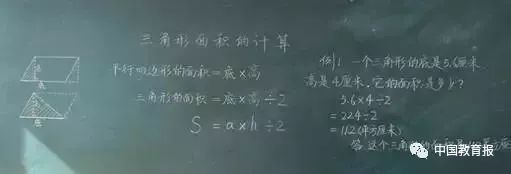 三角形面积的计算
平行四边形的面积=底×高
三角形的面积=底×高÷2
S=a×h÷2
高
底
高
底
例1 一个三角形的底是5.6厘米
高是4厘米.它的面积是多少?
5.6×4÷2
=22.4÷2
=11.2(平方厘米)
答:这个三角
中国教育报